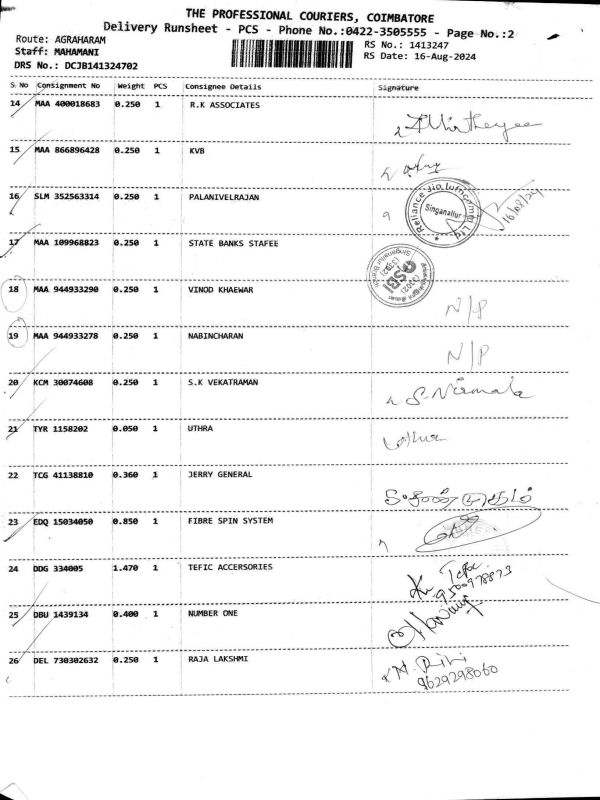 THE PROFESSIONAL COURIERS, COIMBATORE
Delivery Runsheet - PCS - Phone No.:0422-3505555 - Page No.:2
Route: AGRAHARAM
RS No.: 1413247
Staff: MAHAMANI
RS Date: 16-Aug-2024
DRS No.: DCJB141324702
S. No Consignment No Weight PCS Consignee Details Signature
14 MAA 400018683 0.250 1 R.K ASSOCIATES
15 MAA 866896428 0.250 1 KVB
16 SLM 352563314 0.250 1 PALANIVELRAJAN
Reliance Jio Infocomm Ltd
Singanallur
16/08/24
17 MAA 109968823 0.250 1 STATE BANKS STAFEE
SBI
18 MAA 944933290 0.250 1 VINOD KHAEWAR N/P
19 MAA 944933278 0.250 1 NABINCHARAN N/P
20 KCM 30074608 0.250 1 S.K VEKATRAMAN S. Nirmala
21 TYR 1158202 0.050 1 UTHRA
22 TCG 41138810 0.360 1 JERRY GENERAL
23 EDQ 15034050 0.850 1 FIBRE SPIN SYSTEM
24 DDG 334005 1.470 1 TEFIC ACCERSORIES
25 DBU 1439134 0.400 1 NUMBER ONE
26 DEL 730302632 0.250 1 RAJA LAKSHMI
9629298060